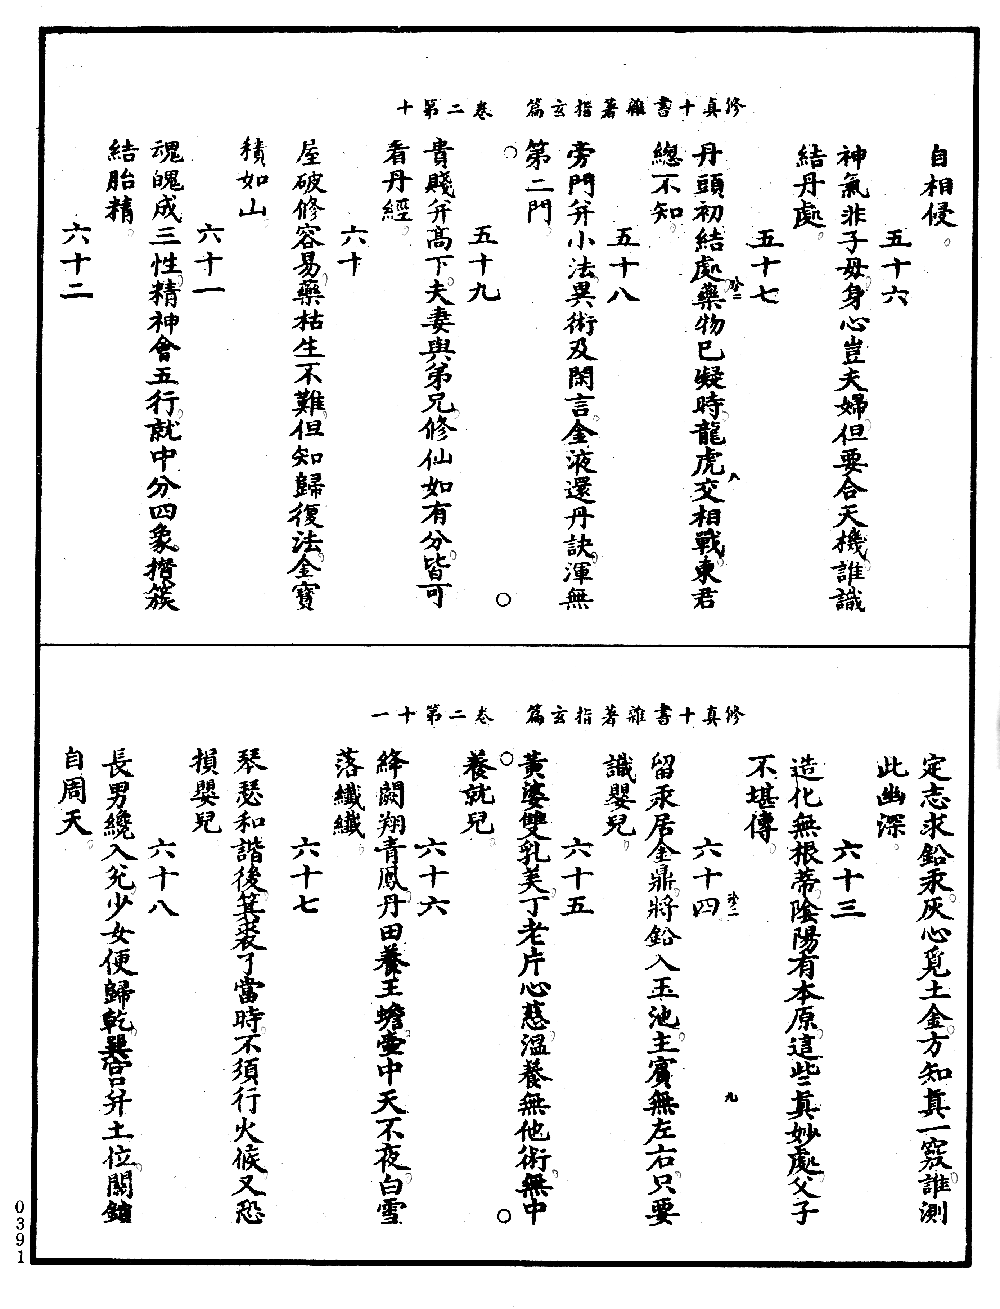 修真十書雜著指玄篇　卷二第十
自相侵。
五十六
神氣非子母身心豈夫婦但要合天機誰識
結丹處。
五十七
丹頭初結處藥物已凝時龍虎交相戰東君
總不知。
五十八
旁門并小法異術及閑言金液還丹訣渾無
第二門。
五十九
貴賤并高下夫妻與弟兄修仙如有分皆可
看丹經。
六十
屋破修容易藥枯生不難但知歸復法金寶
積如山
六十一
魂魄成三性精神會五行就中分四象攢簇
結胎精。
六十二
修真十書雜著指玄篇　卷二第十一
定志求鉛汞灰心覓土金方知真一竅誰測
此幽深。
六十三
造化無根蒂陰陽有本原這些真妙處父子
不堪傳。
六十四
留汞居金鼎將鉛入玉池主賓無左右只要
識嬰兒。
六十五
黃婆雙乳美丁老片心慈溫養無他術無中
養就兒。
六十六
絳闕翔青鳳丹田養玉蟾壺中天不夜白雪
落纖纖。
六十七
琴瑟和諧後箕裘了當時不須行火候又恐
損嬰兒
六十八
長男纔入兌少女便歸乾巽宮并土位關鎖
自周天。
0391